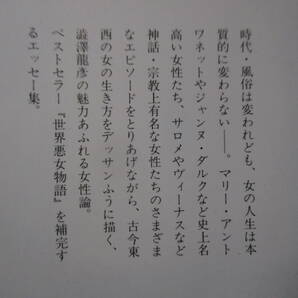 時代・風俗は変われども、女の人生は本
質的に変わらない——。マリー・アント
ワネットやジャンヌ・ダルクなど史上名
高い女性たち、サロメやヴィーナスなど
神話・宗教上有名な女性たちのさまざま
なエピソードをとりあげながら、古今東
西の女の生き方をデッサンふうに描く、
澁澤龍彥の魅力あふれる女性論。
ベストセラー『世界悪女物語』を補完す
るエッセー集。